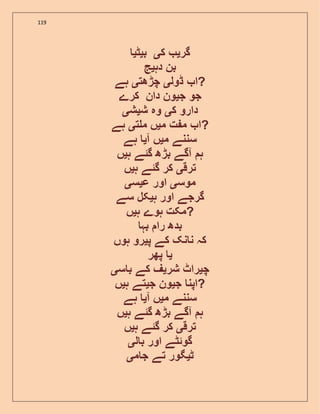 119
گریب کی بیٹیا
بن دہیج
اب ڈولی چڑھتی ہے?
جو جیون دان کرے
دارو کی وہ شیشی
اب مفت میں ملتی ہے?
سننے میں آیا ہے
ہم آگے بڑھ گئے ہیں
ترقی کر گئے ہیں
موسی اور عیسی
گرجے اور ہیکل سے
مکت ہوے ہیں?
بدھ رام بہا
کہ نانک کے پیرو ہوں
یا پھر
چراٹ شریف کے باسی
اپنا جیون جیتے ہیں?
سننے میں آیا ہے
ہم آگے بڑھ گئے ہیں
ترقی کر گئے ہیں
گوئٹے اور بالی
ٹیگور تے جامی